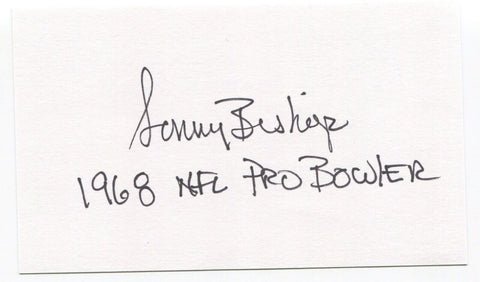 Sonny Bishop
1968 NFL PRO BOWLER